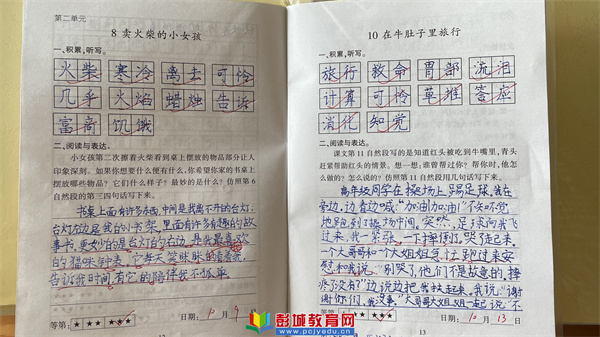 第二单元
8 卖火柴的小女孩
一、积累,听写。
火柴 寒冷 离去 可怜
几乎 火焰 蜡烛 告诉
富商 饥饿
二、阅读与表达。
小女孩第二次擦着火柴看到桌上摆放的物品部分让人
印象深刻。如果你想要什么便有什么,你希望你家的书桌上
摆放哪些物品?它们什么样子?最妙的是什么?仿照第6
自然段的第三四句话写下来。
书桌上面有许多东西,中间是我离不开的台灯,
台灯左边是我的小书架,里面有许多有趣的故
事书,更妙的是台灯的右边,是我最喜欢
的猫咪钟表,它每天笑眯眯的看着我,
告诉我时间,有它的陪伴我不孤单。
等第: ★ ★★ ★★★
日期: 10 月 9
12
10 在牛肚子里旅行
一、积累,听写。
旅行 救命 胃部 流泪
计算 可怜 草堆 答应
消化 知觉
二、阅读与表达。
课文第11自然段写的是知道红头被吃到牛嘴里,青头
赶紧帮助红头的情景。想一想:谁曾帮过你?帮你时,他怎
么做的?怎么说的?仿照第11自然段用几句话写下来。
高年级同学在操场上踢足球,我在
旁边,边看边喊“加油加油!”不知不觉
地跑到操场中间。突然,足球向我飞
过来,我一紧张,一下摔倒了,哭了起来。
一个大哥哥和大姐姐急忙跑过来安
慰和我说:“别哭了,他们不是故意的。摔
疼了没有?”边说边把我扶起来。我说:“谢
谢你们,我没事。”大哥哥大姐姐一起说“不
日期: 10 月 13 日
13
彭城教育网
www.pcjyedu.cn